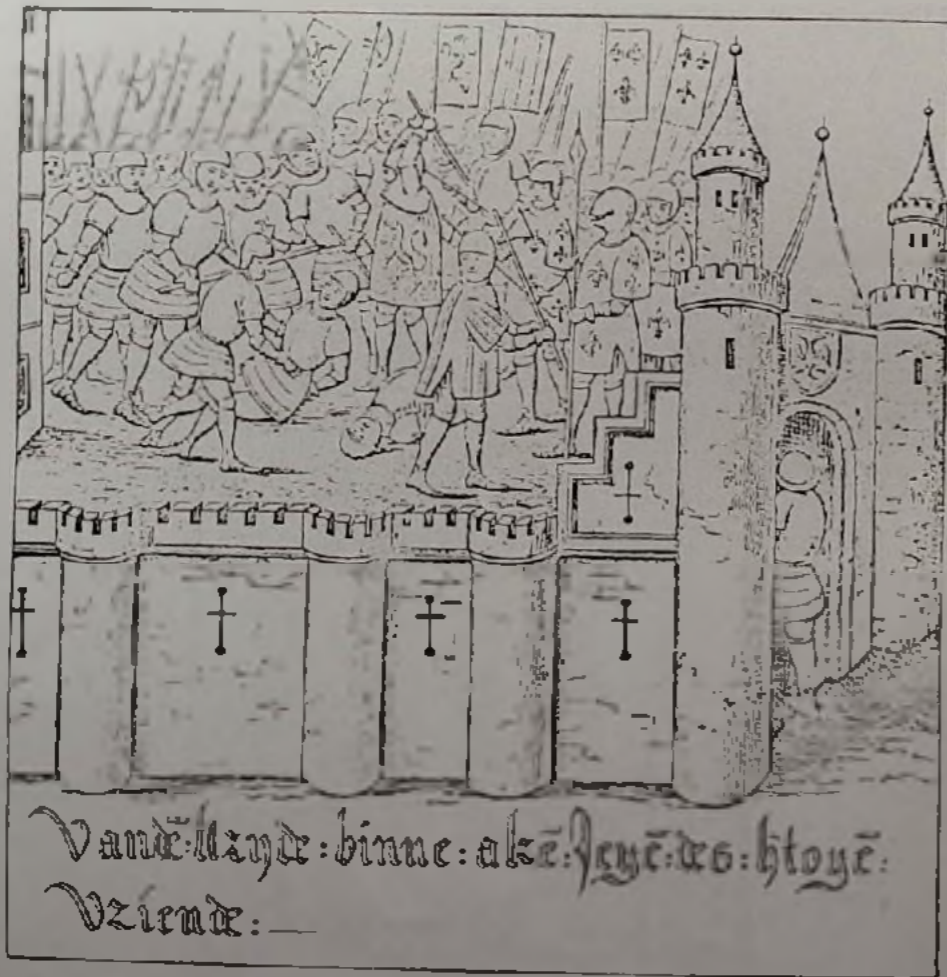 Vandē: stryde : binne : akē : Jegē : des : htogē :
Vriende :